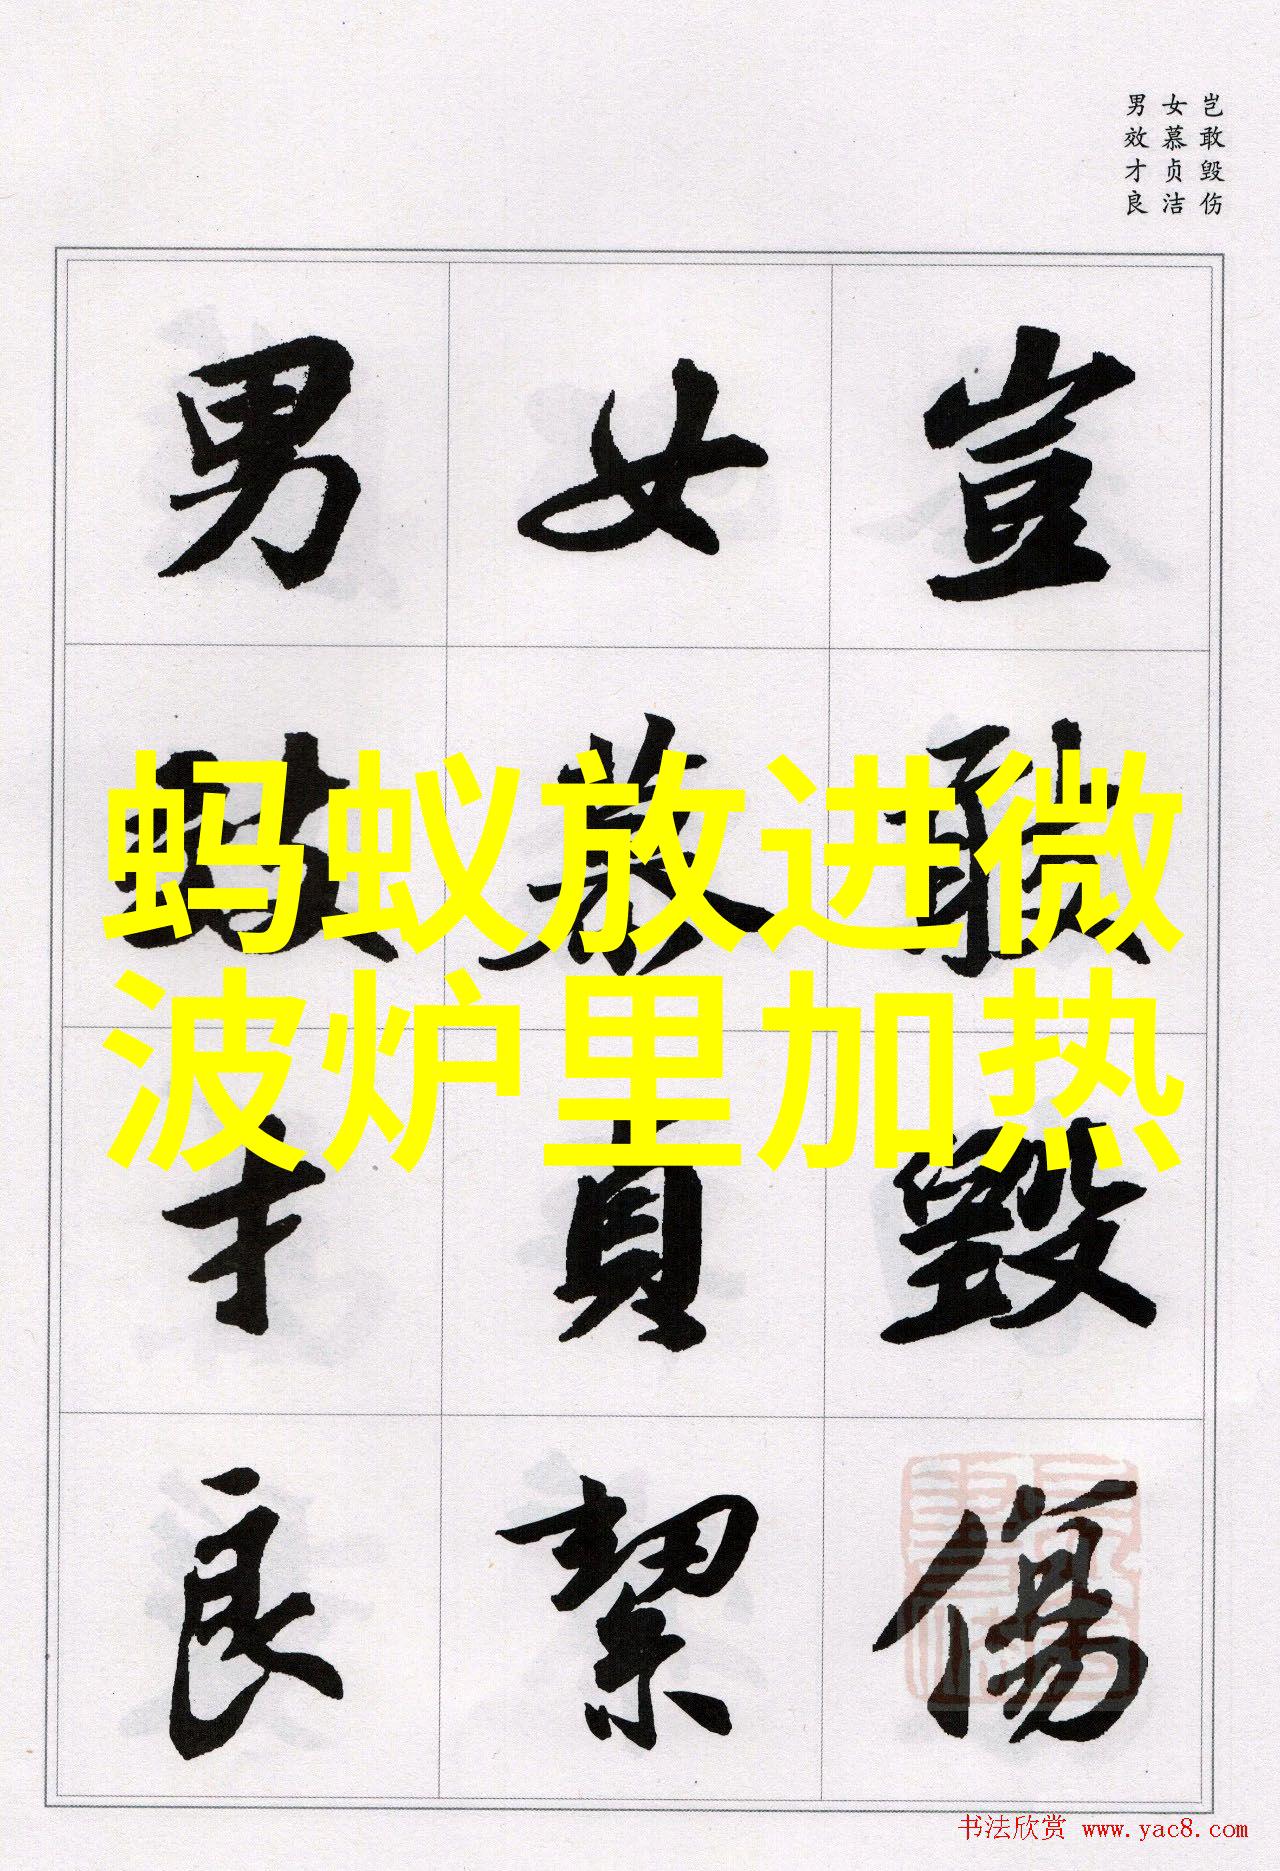 岂敢毁伤
女慕贞洁
男效才良
豈敢毀傷
女慕貞絜
男效才良
蚂蚁放进微
波炉里加热
书法欣赏 www.yac8.com